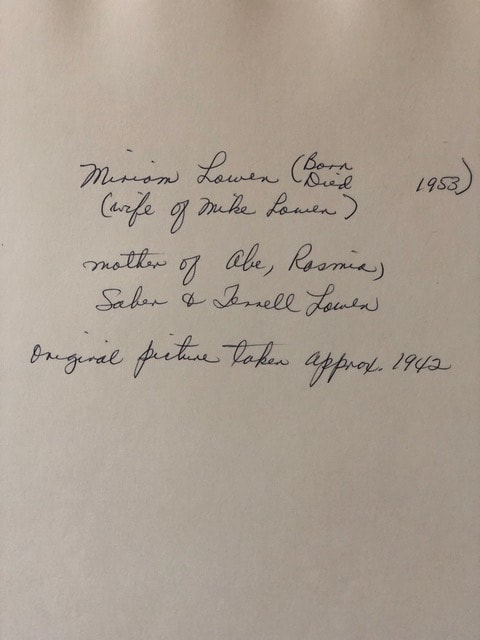 Miriam Lowen (Born
Died 1953)
(wife of Mike Lowen)
mother of Abe, Rosmia,
Saben & Terrell Lowen
Original picture taken approx. 1942